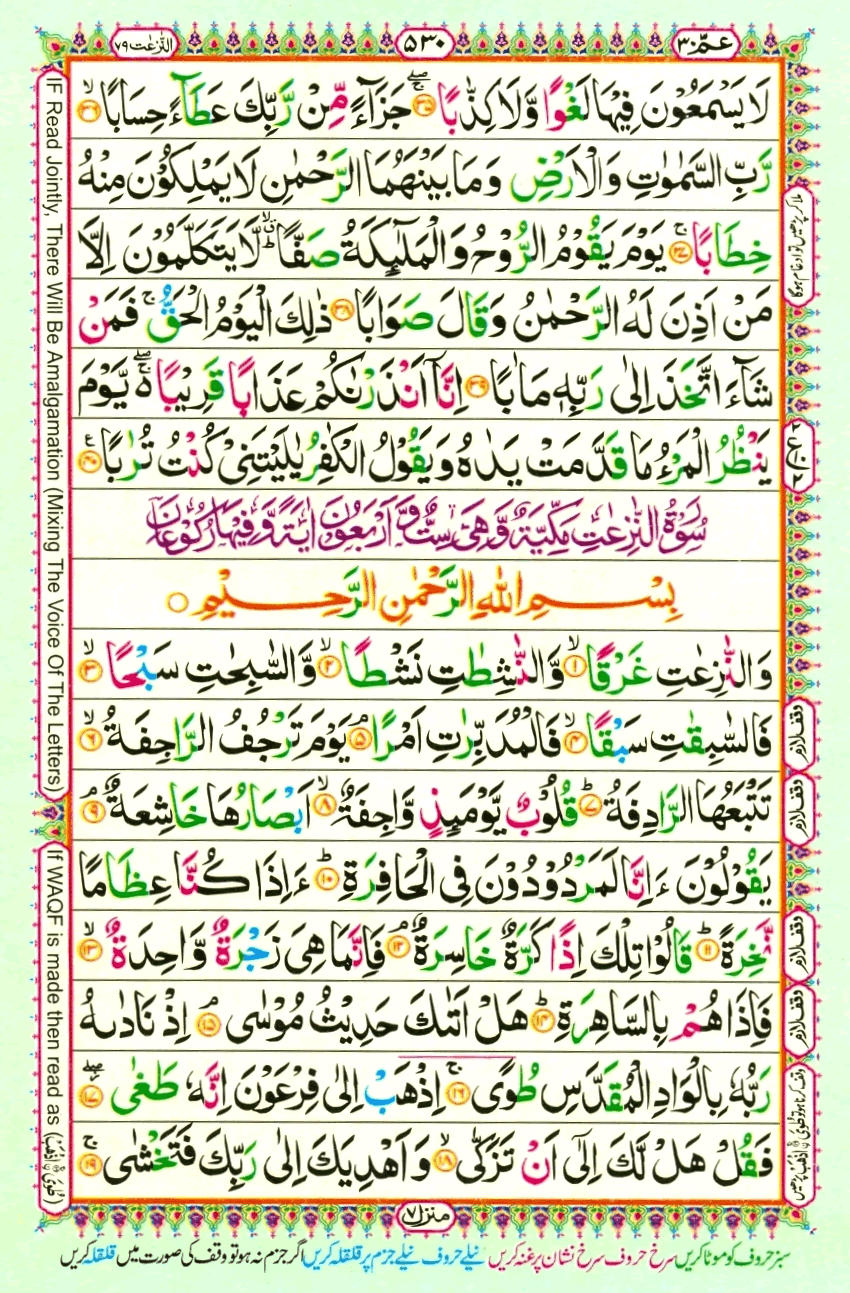 عم ۳۰
۵۳۰
النزعت ۷۹
لَا يَسْمَعُوْنَ فِيْهَا لَغْوًا وَّلَا كِذّٰبًا ۚ‏ ﴿۳۵﴾ جَزَآءً مِّنْ رَّبِّكَ عَطَآءً حِسَابًا ۙ‏ ﴿۳۶﴾
رَّبِّ السَّمٰوٰتِ وَالْاَرْضِ وَمَا بَيْنَهُمَا الرَّحْمٰنِ لَا يَمْلِكُوْنَ مِنْهُ
خِطَابًا ۚ‏ ﴿۳۷﴾ يَوْمَ يَقُوْمُ الرُّوْحُ وَالْمَلٰٓئِكَةُ صَفًّا ۙؕ لَّا يَتَكَلَّمُوْنَ اِلَّا
مَنْ اَذِنَ لَهُ الرَّحْمٰنُ وَقَالَ صَوَابًا‏ ﴿۳۸﴾ ذٰلِكَ الْيَوْمُ الْحَقُّ ۚ فَمَنْ
شَآءَ اتَّخَذَ اِلٰى رَبِّهٖ مَاٰبًا‏ ﴿۳۹﴾ اِنَّاۤ اَنْذَرْنٰكُمْ عَذَابًا قَرِيْبًا ۖۚ يَّوْمَ
يَنْظُرُ الْمَرْءُ مَا قَدَّمَتْ يَدٰهُ وَيَقُوْلُ الْكٰفِرُ يٰلَيْتَنِىْ كُنْتُ تُرٰبًا‏ ﴿۴۰﴾
سُوْرَةُ النّٰزِعٰتِ مَكِّيَّةٌ وَّهِىَ سِتٌّ وَّاَرْبَعُوْنَ اٰيَةً وَّفِيْهَا رُكُوْعَانِ
بِسْمِ اللهِ الرَّحْمٰنِ الرَّحِيْمِ
وَالنّٰزِعٰتِ غَرْقًا ۙ‏ ﴿۱﴾ وَّالنّٰشِطٰتِ نَشْطًا ۙ‏ ﴿۲﴾ وَّالسّٰبِحٰتِ سَبْحًا ۙ‏ ﴿۳﴾
فَالسّٰبِقٰتِ سَبْقًا ۙ‏ ﴿۴﴾ فَالْمُدَبِّرٰتِ اَمْرًا ۘ‏ ﴿۵﴾ يَوْمَ تَرْجُفُ الرَّاجِفَةُ ۙ‏ ﴿۶﴾
تَتْبَعُهَا الرَّادِفَةُ ؕ‏ ﴿۷﴾ قُلُوْبٌ يَّوْمَئِذٍ وَّاجِفَةٌ ۙ‏ ﴿۸﴾ اَبْصَارُهَا خَاشِعَةٌ ۘ‏ ﴿۹﴾
يَقُوْلُوْنَ ءَاِنَّا لَمَرْدُوْدُوْنَ فِى الْحَافِرَةِ ؕ‏ ﴿۱۰﴾ ءَاِذَا كُنَّا عِظَامًا
نَّخِرَةً ؕ‏ ﴿۱۱﴾ قَالُوْا تِلْكَ اِذًا كَرَّةٌ خَاسِرَةٌ ۘ‏ ﴿۱۲﴾ فَاِنَّمَا هِىَ زَجْرَةٌ وَّاحِدَةٌ ۙ‏ ﴿۱۳﴾
فَاِذَا هُمْ بِالسَّاهِرَةِ ؕ‏ ﴿۱۴﴾ هَلْ اَتٰٮكَ حَدِيْثُ مُوْسٰى ۘ‏ ﴿۱۵﴾ اِذْ نَادٰٮهُ
رَبُّهٗ بِالْوَادِ الْمُقَدَّسِ طُوًى ۚ‏ ﴿۱۶﴾ اِذْهَبْ اِلٰى فِرْعَوْنَ اِنَّهٗ طَغٰى ۖ‏ ﴿۱۷﴾
فَقُلْ هَلْ لَّكَ اِلٰٓى اَنْ تَزَكّٰى ۙ‏ ﴿۱۸﴾ وَاَهْدِيَكَ اِلٰى رَبِّكَ فَتَخْشٰى ۚ‏ ﴿۱۹﴾
ملا کر پڑھیں تو ادغام ہوگا
ع
وقف لازم
وقف لازم
وقف لازم
وقف لازم
IF Read Jointly, There Will Be Amalgamation (Mixing The Voice Of The Letters)
If WAQF is made then read as (طُوًى ۝ اِذْهَبْ)
منزل ۷
سبز حروف کو موٹا کریں سرخ حروف سرخ نشان پر غنہ کریں نیلے حروف نیلے جزم پر قلقلہ کریں اگر جزم نہ ہو تو وقف کی صورت میں قلقلہ کریں